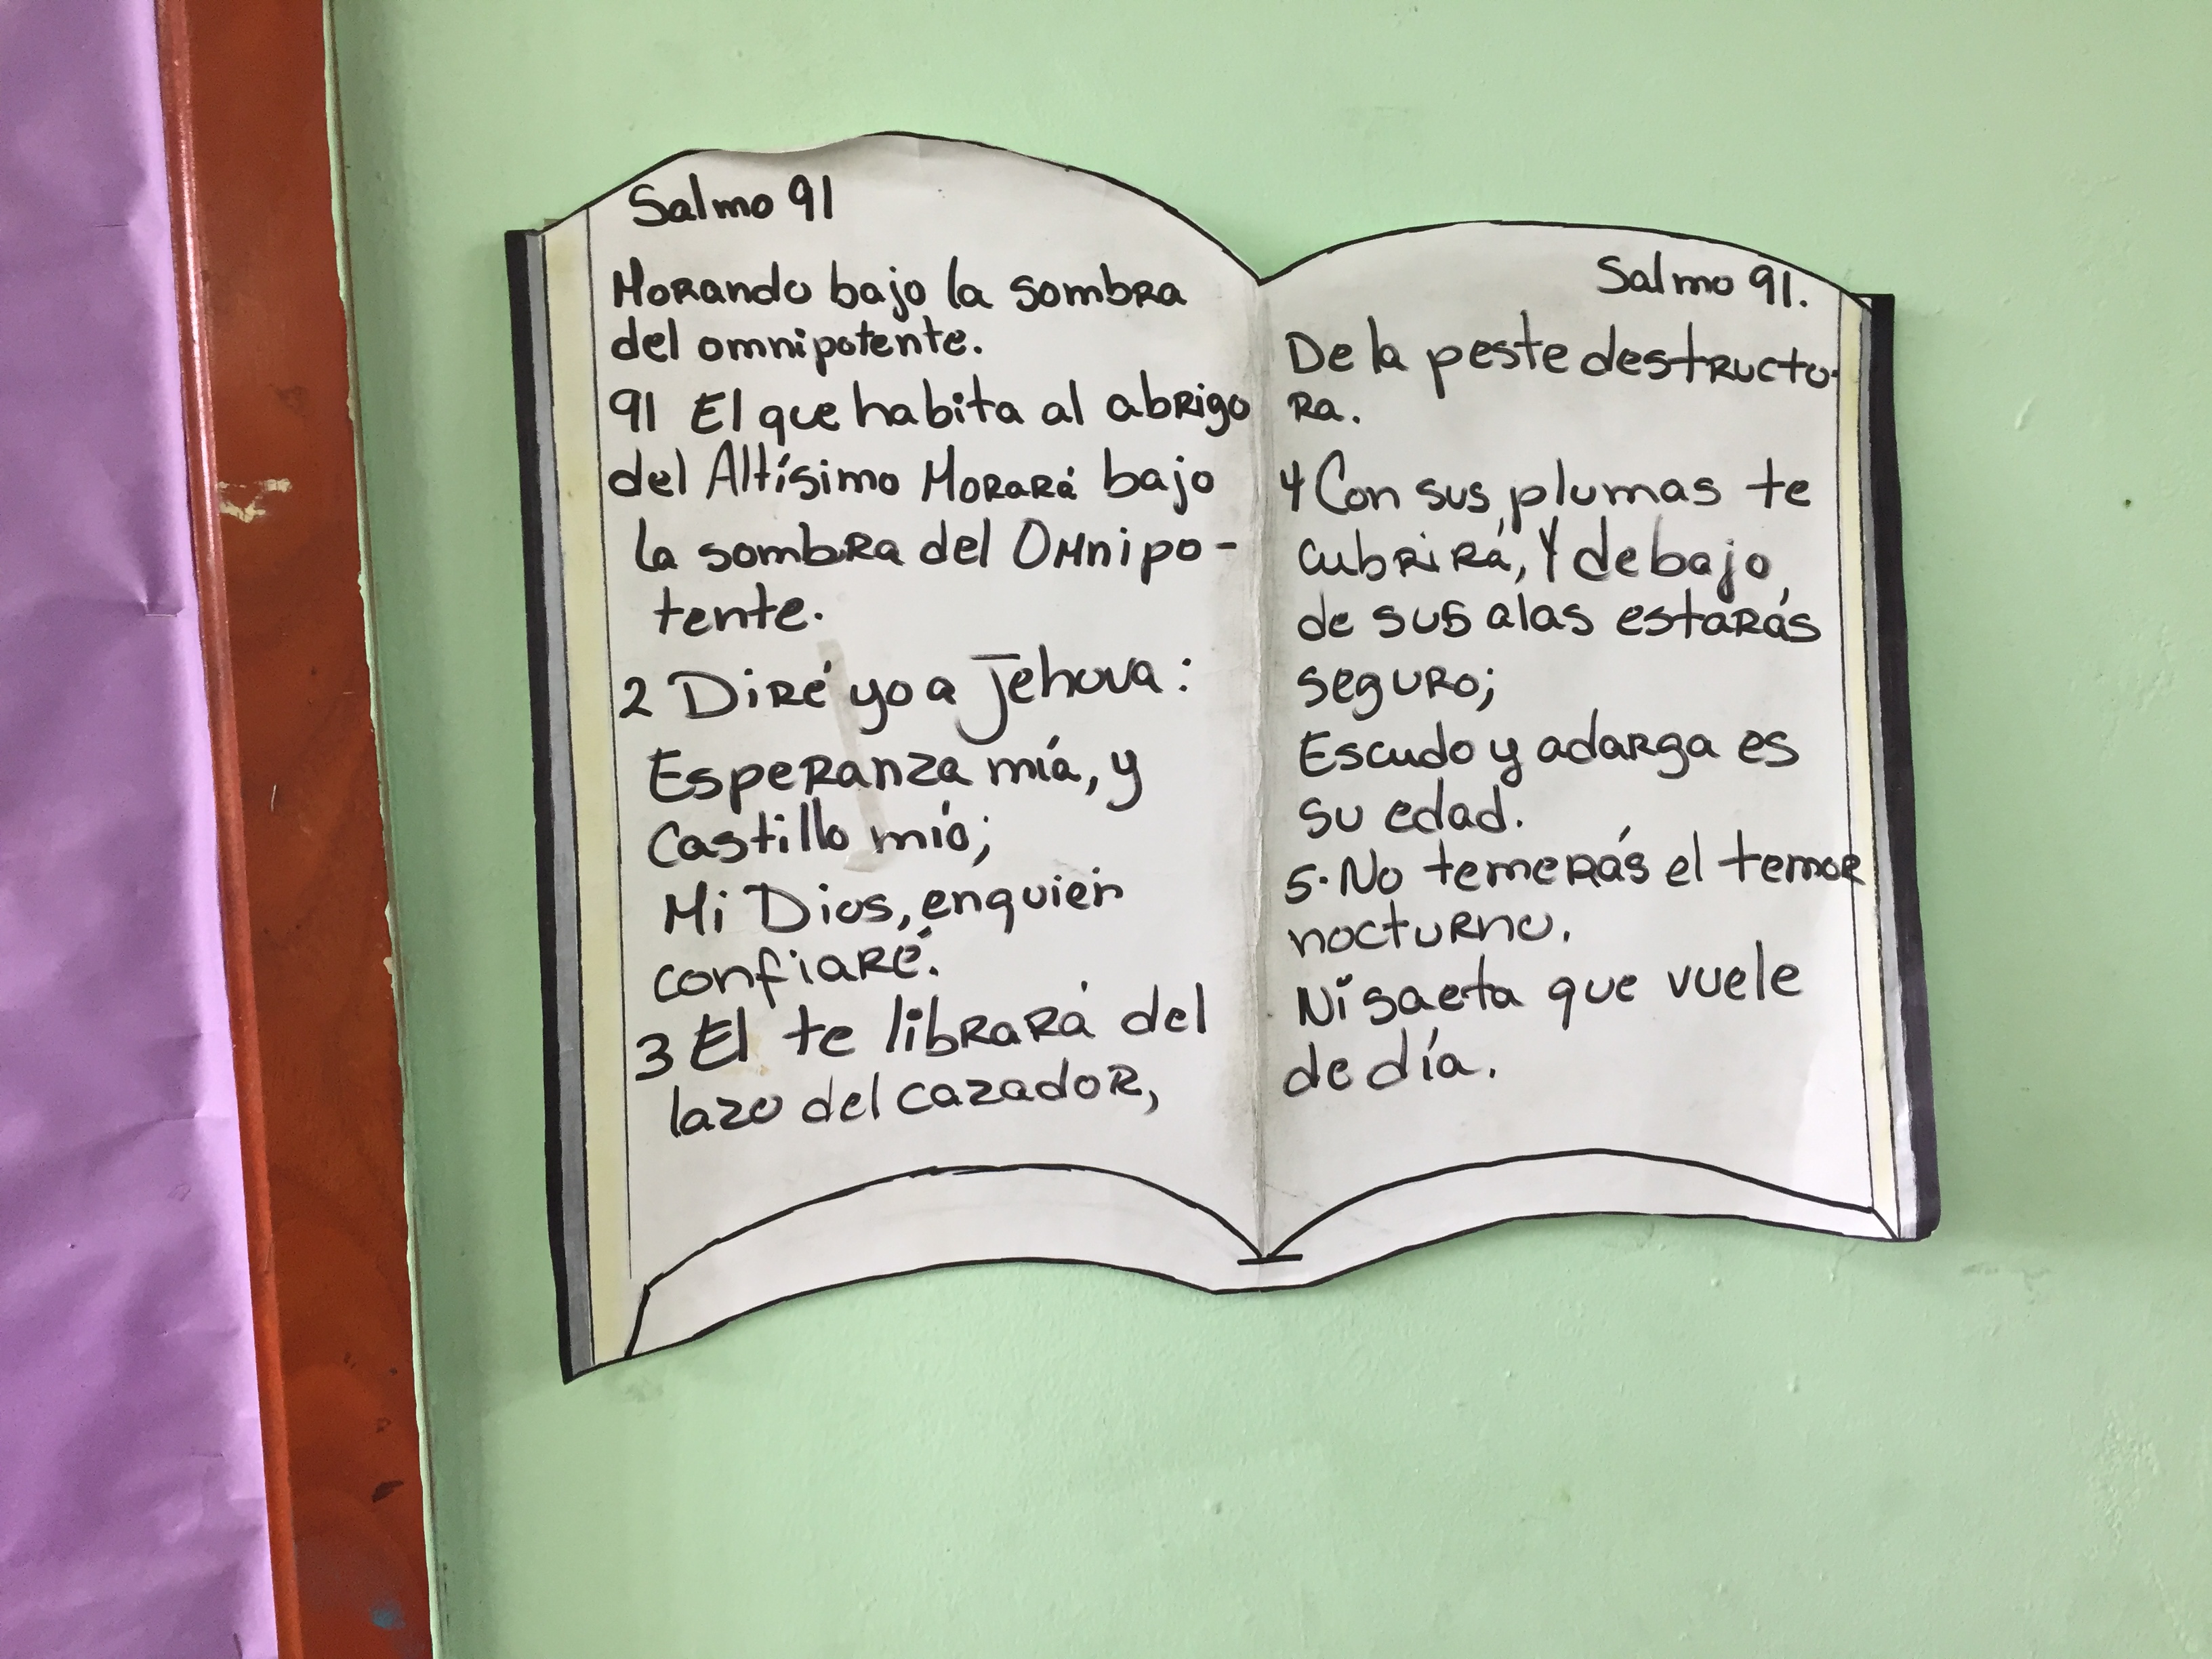 Salmo 91
Morando bajo la sombra
del omnipotente.
91 El que habita al abrigo
del Altísimo Morará bajo
la sombra del Omnipo-
tente.
2 Diré yo a Jehova:
Esperanza mía, y
Castillo mío;
Mi Dios, en quien
confiaré.
3 El te librará del
lazo del cazador,
Salmo 91.
De la peste destructo-
ra.
4 Con sus plumas te
cubrirá, Y debajo
de sus alas estarás
seguro;
Escudo y adarga es
su edad.
5. No temerás el temor
nocturno.
Ni saeta que vuele
de día.